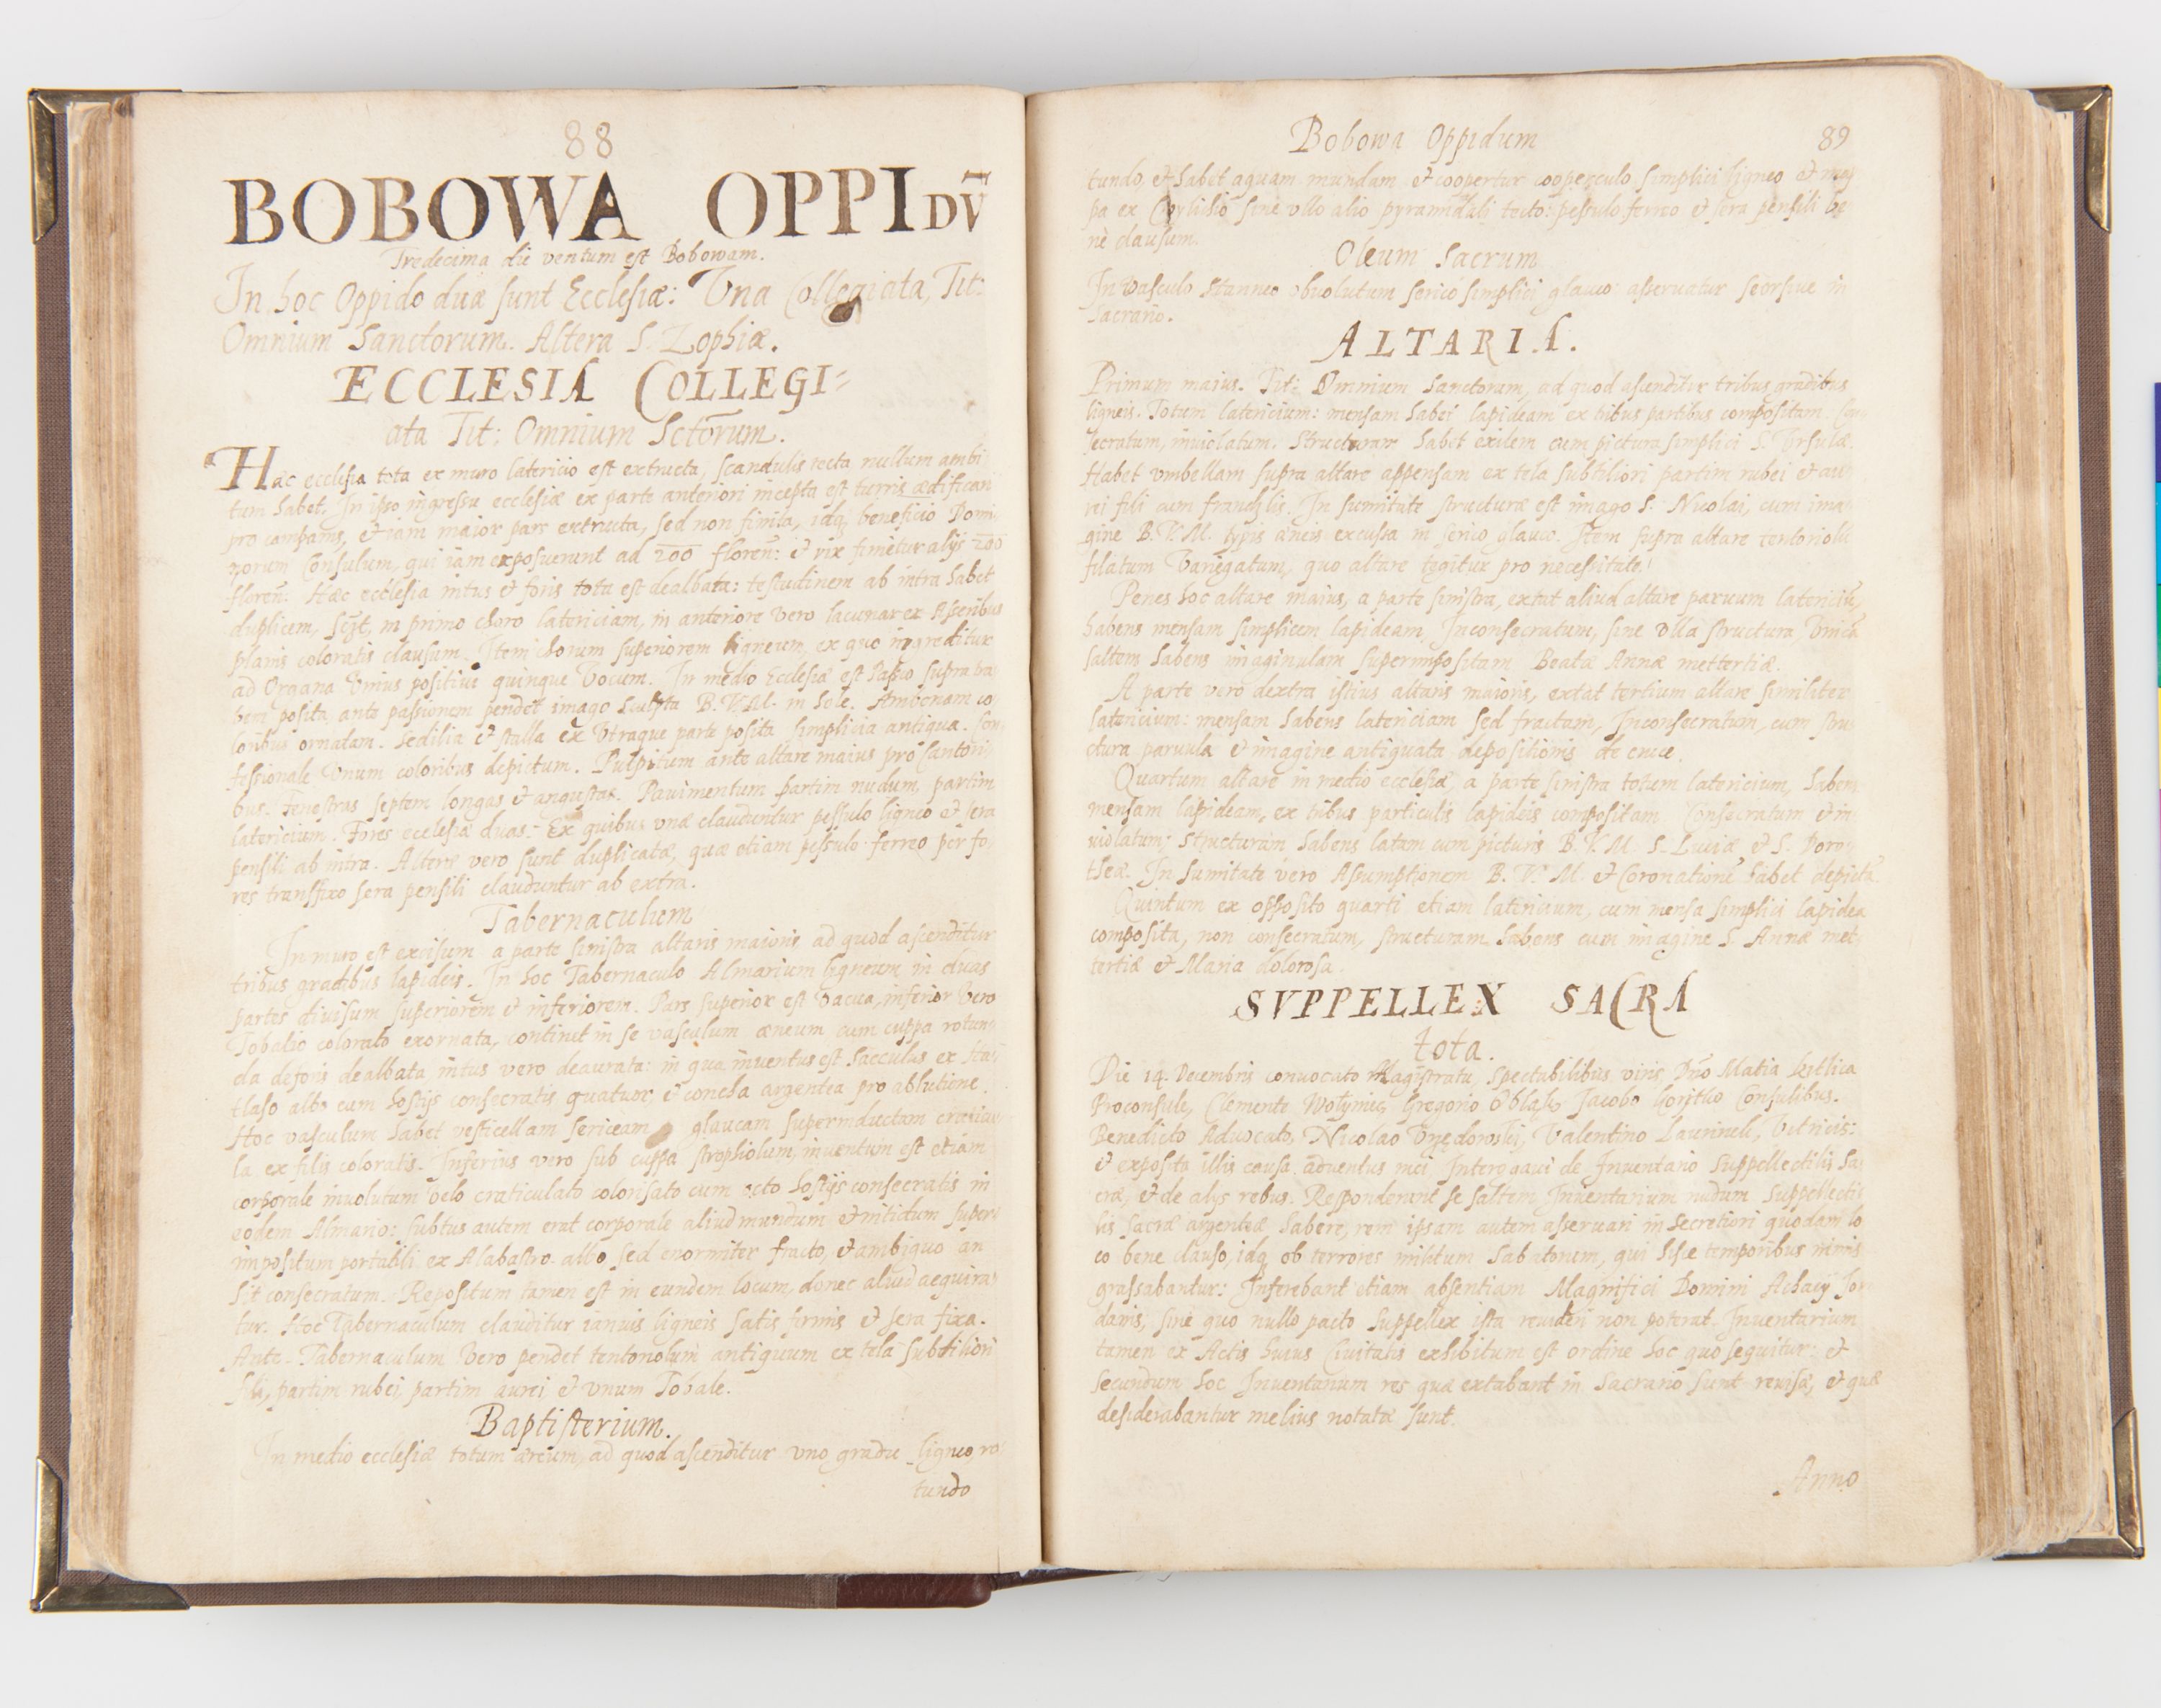 88
BOBOWA OPPIDŪ
Tredecima die ventum est Bobowam.
In hoc Oppido duæ sunt Ecclesiæ: Vna Collegiata, Tit:
Omnium Sanctorum. Altera S. Zophiæ.
ECCLESIA COLLEGI=
ata Tit: Omnium Sctōrum.
Hæc ecclesia tota ex muro latericio est extructa, scandulis tecta nullum ambi
tum habet. In ipso ingressu ecclesiæ ex parte anteriori incepta est turris ædificari
pro campanis, et iam maior pars extructa, sed non finita, idq; beneficio Domi
norum Consulum, qui iam exposuerunt ad 200 floren: et vix finietur alijs 200
floren: Hæc ecclesia intus et foris tota est dealbata: testudinem ab intra habet
duplicem, scżt, in primo choro latericiam, in anteriore vero lacunar ex Asseribus
planis coloratis clausum. Item chorum superiorem ligneum, ex quo ingreditur
ad Organa Vnius positiui quinque Vocum. In medio Ecclesiæ est Passio supra tra
bem posita, ante passionem pendet imago sculpta B.V.M. in Sole. Ambonam co
loribus ornatam. Sedilia et stalla ex Vtraque parte posita simplicia antiqua. Con
fessionale Vnum coloribus depictum. Pulpitum ante altare maius pro Cantori
bus. Fenestras septem longas et angustas. Pauimentum partim nudum, partim
latericium. Fores ecclesiæ duas: Ex quibus vnæ clauduntur pessulo ligneo et sera
pensili ab intra. Alteræ vero sunt duplicatæ, quæ etiam pessulo ferreo per fo
res transfixo sera pensili clauduntur ab extra.
Tabernaculum
In muro est excisum a parte sinistra altaris maioris ad quod ascenditur
tribus gradibus lapideis. In hoc Tabernaculo Almarium ligneum in duas
partes diuisum superiorem et inferiorem. Pars superior est Vacua, inferior Vero
Tobalio colorato exornata, continet in se vasculum æneum cum cuppa rotun
da deforis dealbata intus vero deaurata: in qua inventus est sacculus ex Ha
tlaso albo cum hostijs consecratis quatuor, et concha argentea pro ablutione.
Hoc vasculum habet vesticellam sericeam glaucam superinductam craticu
la ex filis coloratis. Inferius vero sub cuppa strophiolum, inuentum est etiam
corporale inuolutum velo craticulato colorisato cum octo hostijs consecratis in
eodem Almario: subtus autem erat corporale aliud mundum et nitidum super
impositum portatili ex Alabastro albo sed enormiter fracto, et ambiguo an
sit consecratum. Repositum tamen est in eundem locum, donec aliud aequira
tur. Hoc Tabernaculum clauditur ianuis ligneis satis firmis et sera fixa.
Ante Tabernaculum Vero pendet tentoriolum antiquum ex tela subtiliori
fili, partim rubei partim aurei et vnum Tobale.
Baptisterium.
In medio ecclesiæ totum æreum, ad quod ascenditur vno gradu ligneo, ro
tundo
Bobowa Oppidum 89
tundo, et habet aquam mundam et coopertur cooperculo simplici ligneo et map
pa ex Coylisio sine vllo alio pyramidali tecto: pessulo ferreo et sera pensili be
nè clausum.
Oleum Sacrum
In vasculo stanneo obuolutum serico simplici glauco asseruatur seorsiue in
Sacrario.
ALTARIA.
Primum maius. Tit: Omnium Sanctorum, ad quod ascenditur tribus gradibus
ligneis. Totum latericium: mensam habet lapideam ex tribus partibus compositam. Con
secratum, inuiolatum. Structuram habet exilem cum pictura simplici S. Vrsulæ.
Habet vmbellam supra altare appensam ex tela subtiliori partim rubei et au
rei fili cum frandzlis. In sumitate structuræ est imago S: Nicolai, cum ima
gine B.V.M. typis æneis excussa in serico glauco. Item supra altare tentoriolū
filatum Variegatum, quo altare tegitur pro necessitate.
Penes hoc altare maius, a parte sinistra, extat aliud altare paruum latericiū,
habens mensam simplicem lapideam, Inconsecratum, sine vlla structura, Vnicā
saltem habens imaginulam superimpositam Beatæ Annæ mettertiæ.
A parte vero dextra istius altaris maioris, extat tertium altare similiter
latericium: mensam habens latericiam sed fractam, Inconsecratum, cum stru
ctura paruula et imagine antiquata depositionis de cruce.
Quartum altare in medio ecclesiæ, a parte sinistra totum latericium, habens
mensam lapideam, ex tribus particulis lapideis compositam. Consecratum et in
violatum; structuram habens latam cum picturis B.V.M. S. Luciæ et S. Doro
theæ. In sumitate vero Assumptionem B.V.M. et Coronationē habet depictā
Quintum ex opposito quarti etiam latericium, cum mensa simplici lapidea
composita, non consecratum, structuram habens cum imagine S. Annæ met
tertiæ et Maria dolorosa.
SVPPELLEX SACRA
tota.
Die 14. Decembris conuocato Magistratu, Spectabilibus viris, Dno Matia Kitlica
Proconsule, Clemente Wołyniec, Gregorio Oblasz, Jacobo Horitko Consulibus.
Benedicto Aduocato, Nicolao Vnędoroski, Valentino Laurinek, Vitricis:
et exposita illis causa aduentus mei, Interogaui de Inuentario Suppellectilis Sa
cræ, et de alys rebus. Responderunt se saltem Inuentarium nudum suppellecti
lis sacræ argenteæ habere, rem ipsam autem asseruari in secretiori quodam lo
co bene clauso, idq ob terrores militum Sabatorum, qui hisce temporibus nimis
grassabantur: Inferebant etiam absentiam Magnifici Domini Achacy Jor
danis, sine quo nullo pacto suppellex ista reuideri non poterat. Inuentarium
tamen ex Actis huius Ciuitatis exhibitum est ordine hoc quo sequitur: et
secundum hoc Inuentarium res quæ extabant in Sacrario sunt reuisæ, et quæ
desiderabantur melius notatæ sunt.
Anno